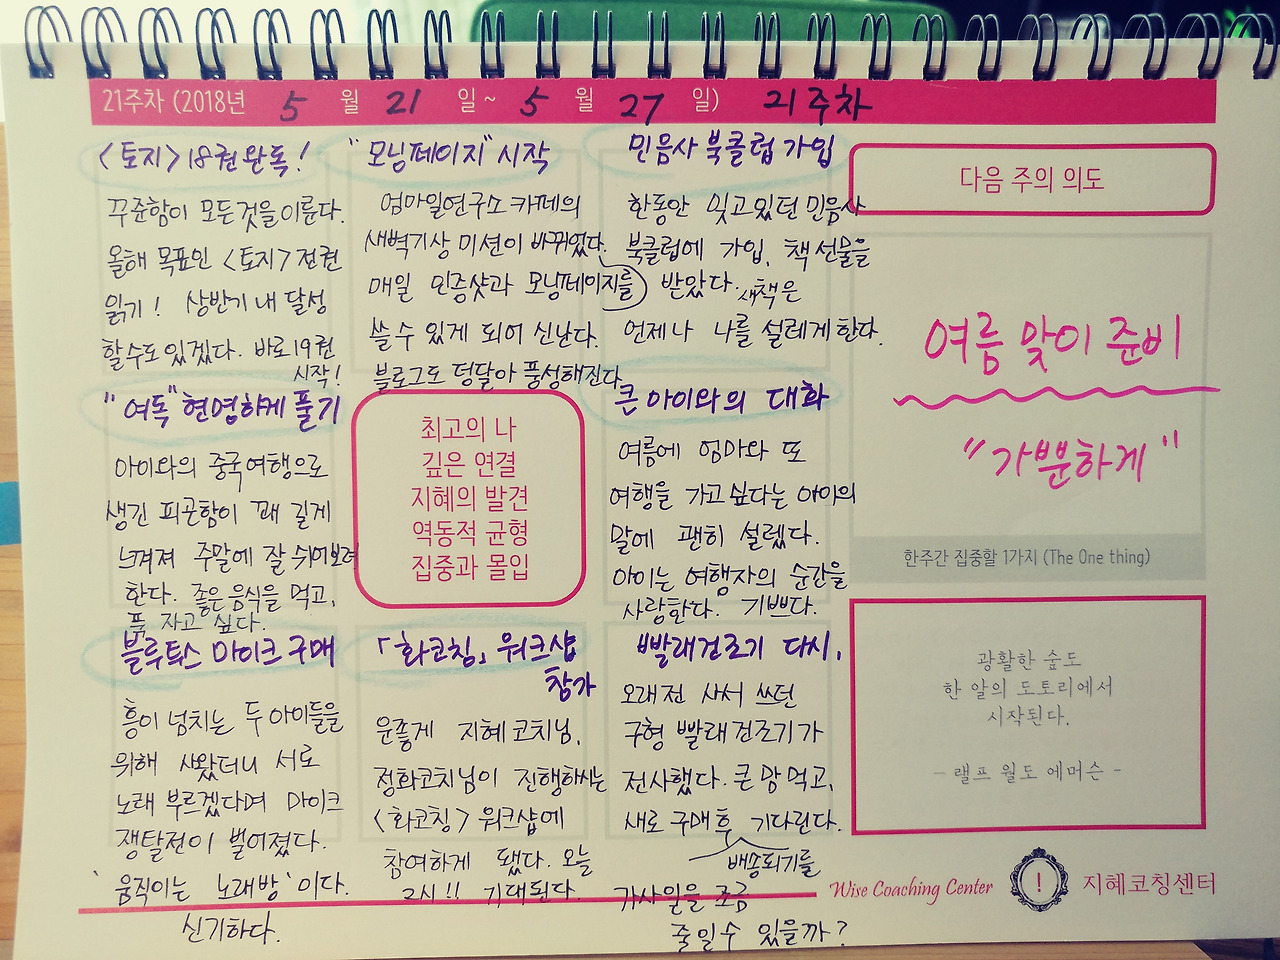 21주차 (2018년 5 월 21 일~ 5 월 27 일) 21주차
<토지> 18권 완독!
꾸준함이 모든것을 이룬다.
올해 목표인 <토지> 전권
읽기! 상반기 내 달성
할수도 있겠다. 바로 19권
시작!
"모닝페이지" 시작
엄마일연구소 카페의
새벽기상 미션이 바뀌었다.
매일 인증샷과 모닝페이지를
쓸 수 있게 되어 신난다.
블로그도 덩달아 풍성해진다.
민음사 북클럽 가입
한동안 잊고있던 민음사
북클럽에 가입, 책 선물을
받았다. 새책은
언제나 나를 설레게 한다.
다음 주의 의도
여름 맞이 준비
"가뿐하게"
한주간 집중할 1가지 (The One thing)
"여독" 현명하게 풀기
아이와의 중국여행으로
생긴 피곤함이 꽤 길게
느껴져 주말에 잘 쉬어보려
한다. 좋은 음식을 먹고,
푹 자고 싶다.
최고의 나
깊은 연결
지혜의 발견
역동적 균형
집중과 몰입
큰 아이와의 대화
여름에 엄마와 또
여행을 가고 싶다는 아이의
말에 괜히 설렜다.
아이는 여행자의 순간을
사랑한다. 기쁘다.
블루투스 마이크 구매
흥이 넘치는 두 아이들을
위해 사왔더니 서로
노래 부르겠다며 마이크
쟁탈전이 벌어졌다.
'움직이는 노래방'이다.
신기하다.
「화코칭」 워크샵
참가
운좋게 지혜코치님,
정화코치님이 진행하시는
<화코칭> 워크샵에
참여하게 됐다. 오늘
2시!! 기대된다.
빨래건조기 다시,
오래전 사서 쓰던
구형 빨래건조기가
전사했다. 큰 맘 먹고,
새로 구매 후 기다린다.
배송되기를
가사일을 조금
줄일수 있을까?
광활한 숲도
한 알의 도토리에서
시작된다.
- 랠프 월도 에머슨 -
Wise Coaching Center ! 지혜코칭센터